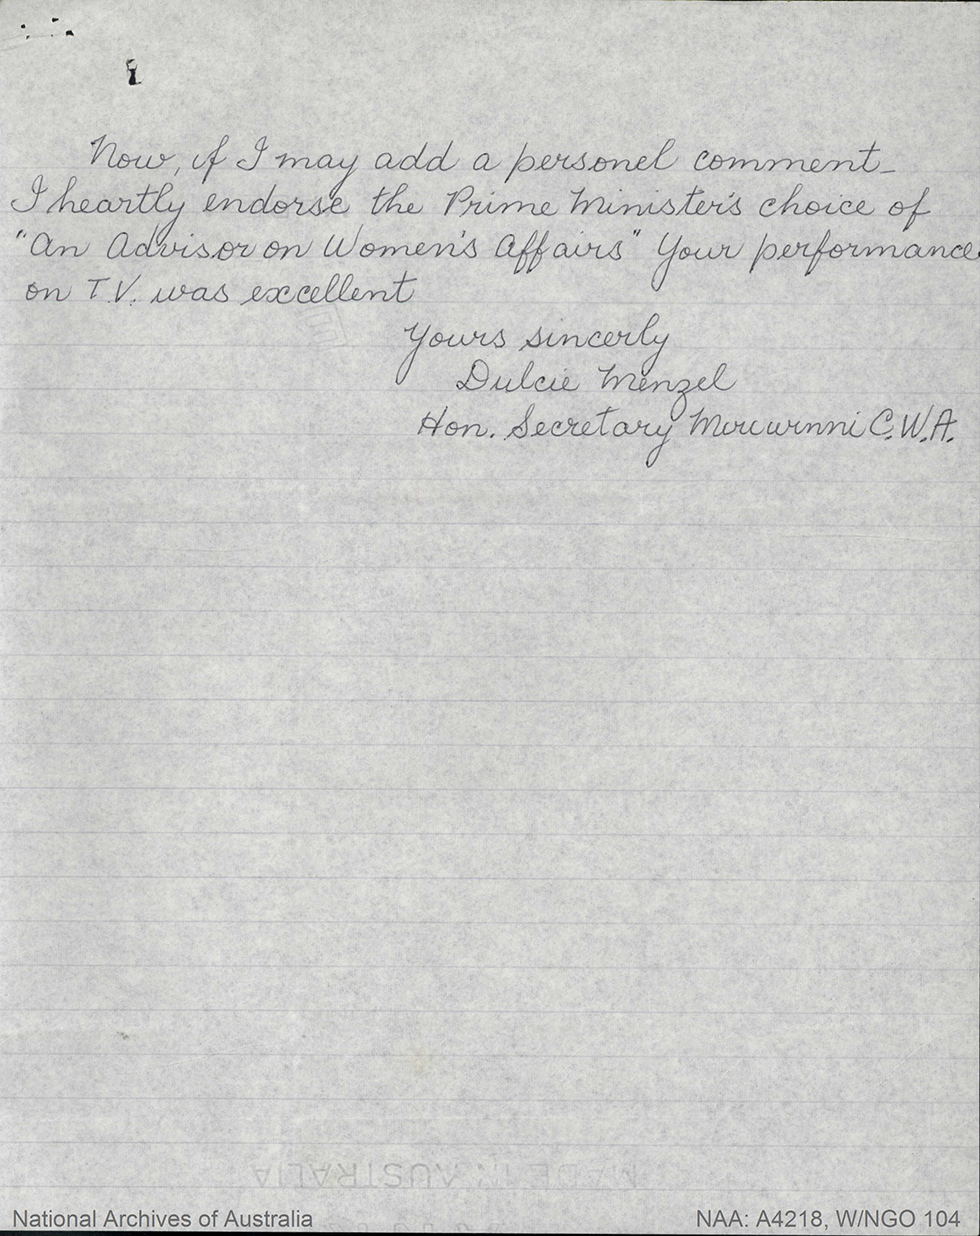 Now, if I may add a personel comment -
I heartly endorse the Prime Minister's choice of
"An Advisor on Women's Affairs" Your performance
on T.V. was excellent
Yours sincerly
Dulcie Menzel
Hon. Secretary C.W.A.
MADE IN AUSTRALIA
National Archives of Australia
NAA: A4218, W/NGO 104